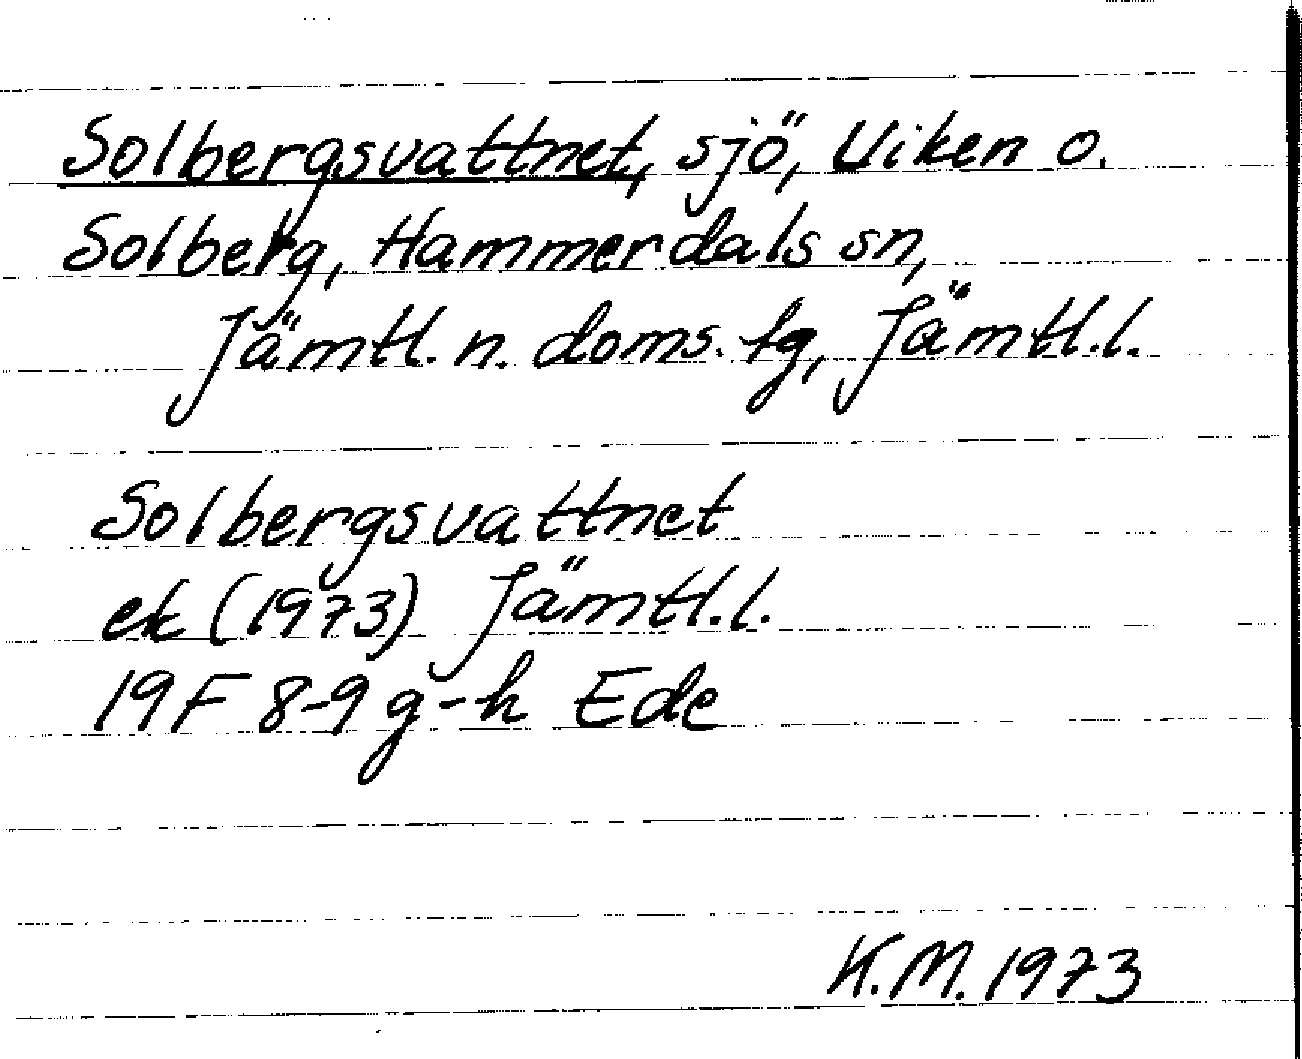 Solbergsvattnet, sjö, Viken o.
Solberg, Hammerdals sn,
Jämtl. n. doms. fg, Jämtl.l.
Solbergsvattnet
ek (1973) Jämtl.l.
19F 8-9 g-h Ede
K.M. 1973